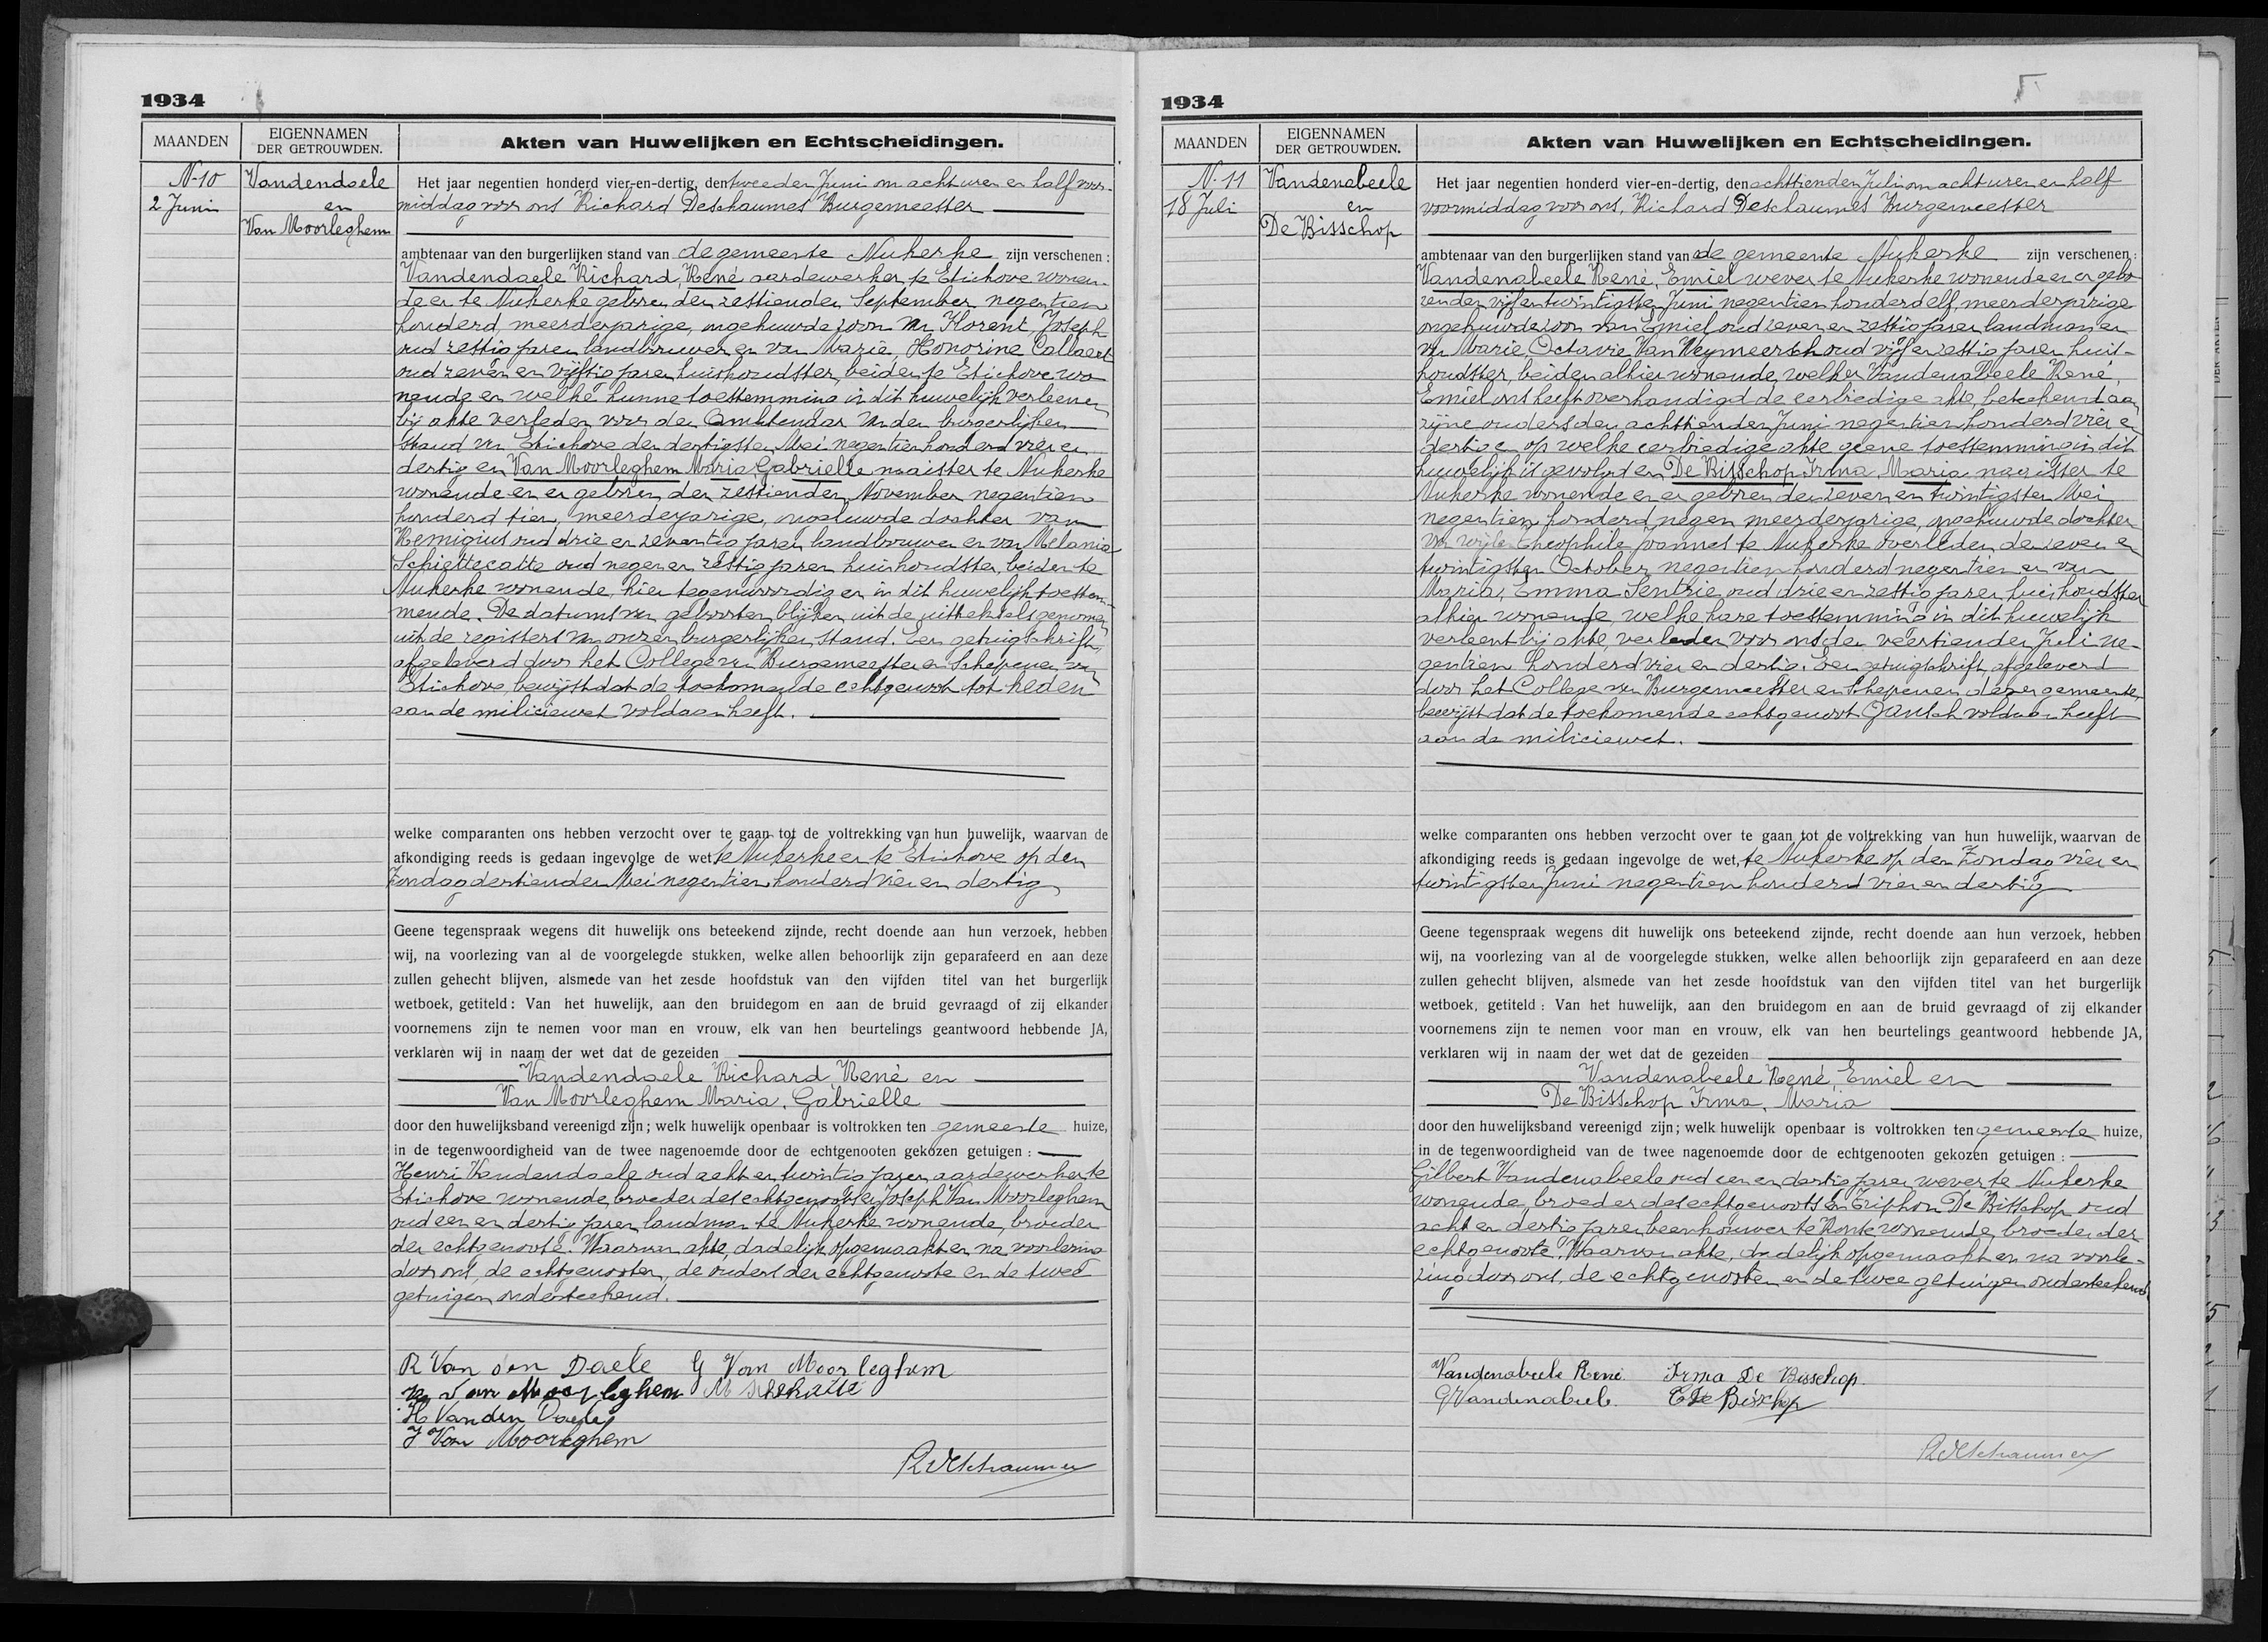 1934
MAANDEN
EIGENNAMEN
DER GETROUWDEN.
Akten van Huwelijken en Echtscheidingen.
N-10
2 Juni
Vandendaele
en
Van Moorleghem
Het jaar negentien honderd vier-en-dertig, den tweeden Juni om acht uren en half voor-
middag voor ons Richard Deschaumes Burgemeester
ambtenaar van den burgerlijken stand van de gemeente Nukerke zijn verschenen :
Vandendaele Richard, René aardewerker te Etichove wonen-
de en te Nukerke geboren den zestienden September negentien
honderd, meerderjarige, ongehuwde zoon van Florent, Joseph
oud zestig jaren landbouwer en van Marie, Honorine Callaert
oud zeven en vijftig jaren huishoudster, beiden te Etichove wo
nende en welke hunne toestemming in dit huwelijk verleenen
bij akte verleden voor den Ambtenaar van den burgerlijken
Stand van Etichove den dertigsten Mei negentien honderd vier en
dertig en Van Moorleghem Maria Gabrielle naaister te Nukerke
wonende en er geboren den zestienden November negentien
honderd tien, meerderjarige, ongehuwde dochter van
Remigius oud drie en zeventig jaren landbouwer en van Melania
Schiettecatte oud negen en zestig jaren huishoudster, beiden te
Nukerke wonende, hier tegenwoordig en in dit huwelijk toestem-
mende. De datums van geboorten blijken uit de uittreksels genomen
uit de registers van onzen burgerlijken stand. Een getuigschrift,
afgeleverd door het College van Burgemeester en Schepenen van
Etichove, bewijst dat de toekomende echtgenoot tot heden
aan de miliciewet voldaan heeft.
welke comparanten ons hebben verzocht over te gaan tot de voltrekking van hun huwelijk, waarvan de
afkondiging reeds is gedaan ingevolge de wet te Nukerke en te Etichove op den
Zondag dertienden Mei negentien honderd vier en dertig
Geene tegenspraak wegens dit huwelijk ons beteekend zijnde, recht doende aan hun verzoek, hebben
wij, na voorlezing van al de voorgelegde stukken, welke allen behoorlijk zijn geparafeerd en aan deze
zullen gehecht blijven, alsmede van het zesde hoofdstuk van den vijfden titel van het burgerlijk
wetboek, getiteld : Van het huwelijk, aan den bruidegom en aan de bruid gevraagd of zij elkander
voornemens zijn te nemen voor man en vrouw, elk van hen beurtelings geantwoord hebbende JA,
verklaren wij in naam der wet dat de gezeiden
Vandendaele Richard, René en
Van Moorleghem Maria, Gabrielle
door den huwelijksband vereenigd zijn ; welk huwelijk openbaar is voltrokken ten gemeente huize,
in de tegenwoordigheid van de twee nagenoemde door de echtgenooten gekozen getuigen :
Henri Vandendaele oud acht en twintig jaren aardewerker te
Etichove wonende, broeder des echtgenoots en Joseph Van Moorleghem
oud een en dertig jaren landman te Nukerke wonende, broeder
der echtgenoote. Waarvan akte, dadelijk opgemaakt en na voorlezing
door ons, de echtgenooten, de ouders der echtgenoote en de twee
getuigen onderteekend.
R Van den Daele G Van Moorleghem
R Van Moorleghem M
H Vanden Daele
J Van Moorleghem
R Deschaumes
1934
MAANDEN
EIGENNAMEN
DER GETROUWDEN.
Akten van Huwelijken en Echtscheidingen.
N. 11
18 Juli
Vandenabeele
en
De Bisschop
Het jaar negentien honderd vier-en-dertig, den achttienden Juli om acht uren en half
voormiddag voor ons, Richard Deschaumes Burgemeester
ambtenaar van den burgerlijken stand van de gemeente Nukerke zijn verschenen :
Vandenabeele René, Emiel wever te Nukerke wonende en er gebo
ren den vijf en twintigsten Juni negentien honderd elf, meerderjarige
ongehuwde zoon van Emiel oud zeven en zestig jaren landman en
van Marie, Octavie Van Weymeersch oud vijf en zestig jaren huis-
houdster, beiden alhier wonende, welken Vandenabeele René,
Emiel ons heeft overhandigd de eerbiedige akte, beteekend aan
zijne ouders den achttienden Juni negentien honderd vier en
dertig en op welke eerbiedige akte geene toestemming in dit
huwelijk is gevolgd en De Bisschop Irma, Maria naaister te
Nukerke wonende en er geboren den zeven en twintigsten Mei
negentien honderd negen meerderjarige, ongehuwde dochter
van wijlen Theophile Joannes te Nukerke overleden den zeven en
twintigsten October negentien honderd negentien en van
Maria, Emma Gentrie oud drie en zestig jaren huishoudster
alhier wonende, welke hare toestemming in dit huwelijk
verleent bij akte, verleden voor ons den veertienden Juli ne-
gentien honderd vier en dertig. Een getuigschrift, afgeleverd
door het College van Burgemeester en Schepenen dezer gemeente
bewijst dat de toekomende echtgenoot Gansch voldaan heeft
aan de miliciewet.
welke comparanten ons hebben verzocht over te gaan tot de voltrekking van hun huwelijk, waarvan de
afkondiging reeds is gedaan ingevolge de wet, te Nukerke op den Zondag vier en
twintigsten Juni negentien honderd vier en dertig
Geene tegenspraak wegens dit huwelijk ons beteekend zijnde, recht doende aan hun verzoek, hebben
wij, na voorlezing van al de voorgelegde stukken, welke allen behoorlijk zijn geparafeerd en aan deze
zullen gehecht blijven, alsmede van het zesde hoofdstuk van den vijfden titel van het burgerlijk
wetboek, getiteld : Van het huwelijk, aan den bruidegom en aan de bruid gevraagd of zij elkander
voornemens zijn te nemen voor man en vrouw, elk van hen beurtelings geantwoord hebbende JA,
verklaren wij in naam der wet dat de gezeiden
Vandenabeele René, Emiel en
De Bisschop Irma, Maria
door den huwelijksband vereenigd zijn ; welk huwelijk openbaar is voltrokken ten gemeente huize,
in de tegenwoordigheid van de twee nagenoemde door de echtgenooten gekozen getuigen :
Gilbert Vandenabeele oud een en dertig jaren wever te Nukerke
wonende, broeder des echtgenoots en Triphon De Bisschop oud
acht en dertig jaren beenhouwer te Ronse wonende, broeder der
echtgenoote. Waarvan akte, dadelijk opgemaakt en na voorle-
zing door ons, de echtgenooten en de twee getuigen onderteekend
Vandenabeele René. Irma De Bisschop
G Vandenabeele. T De Bisschop
R Deschaumes